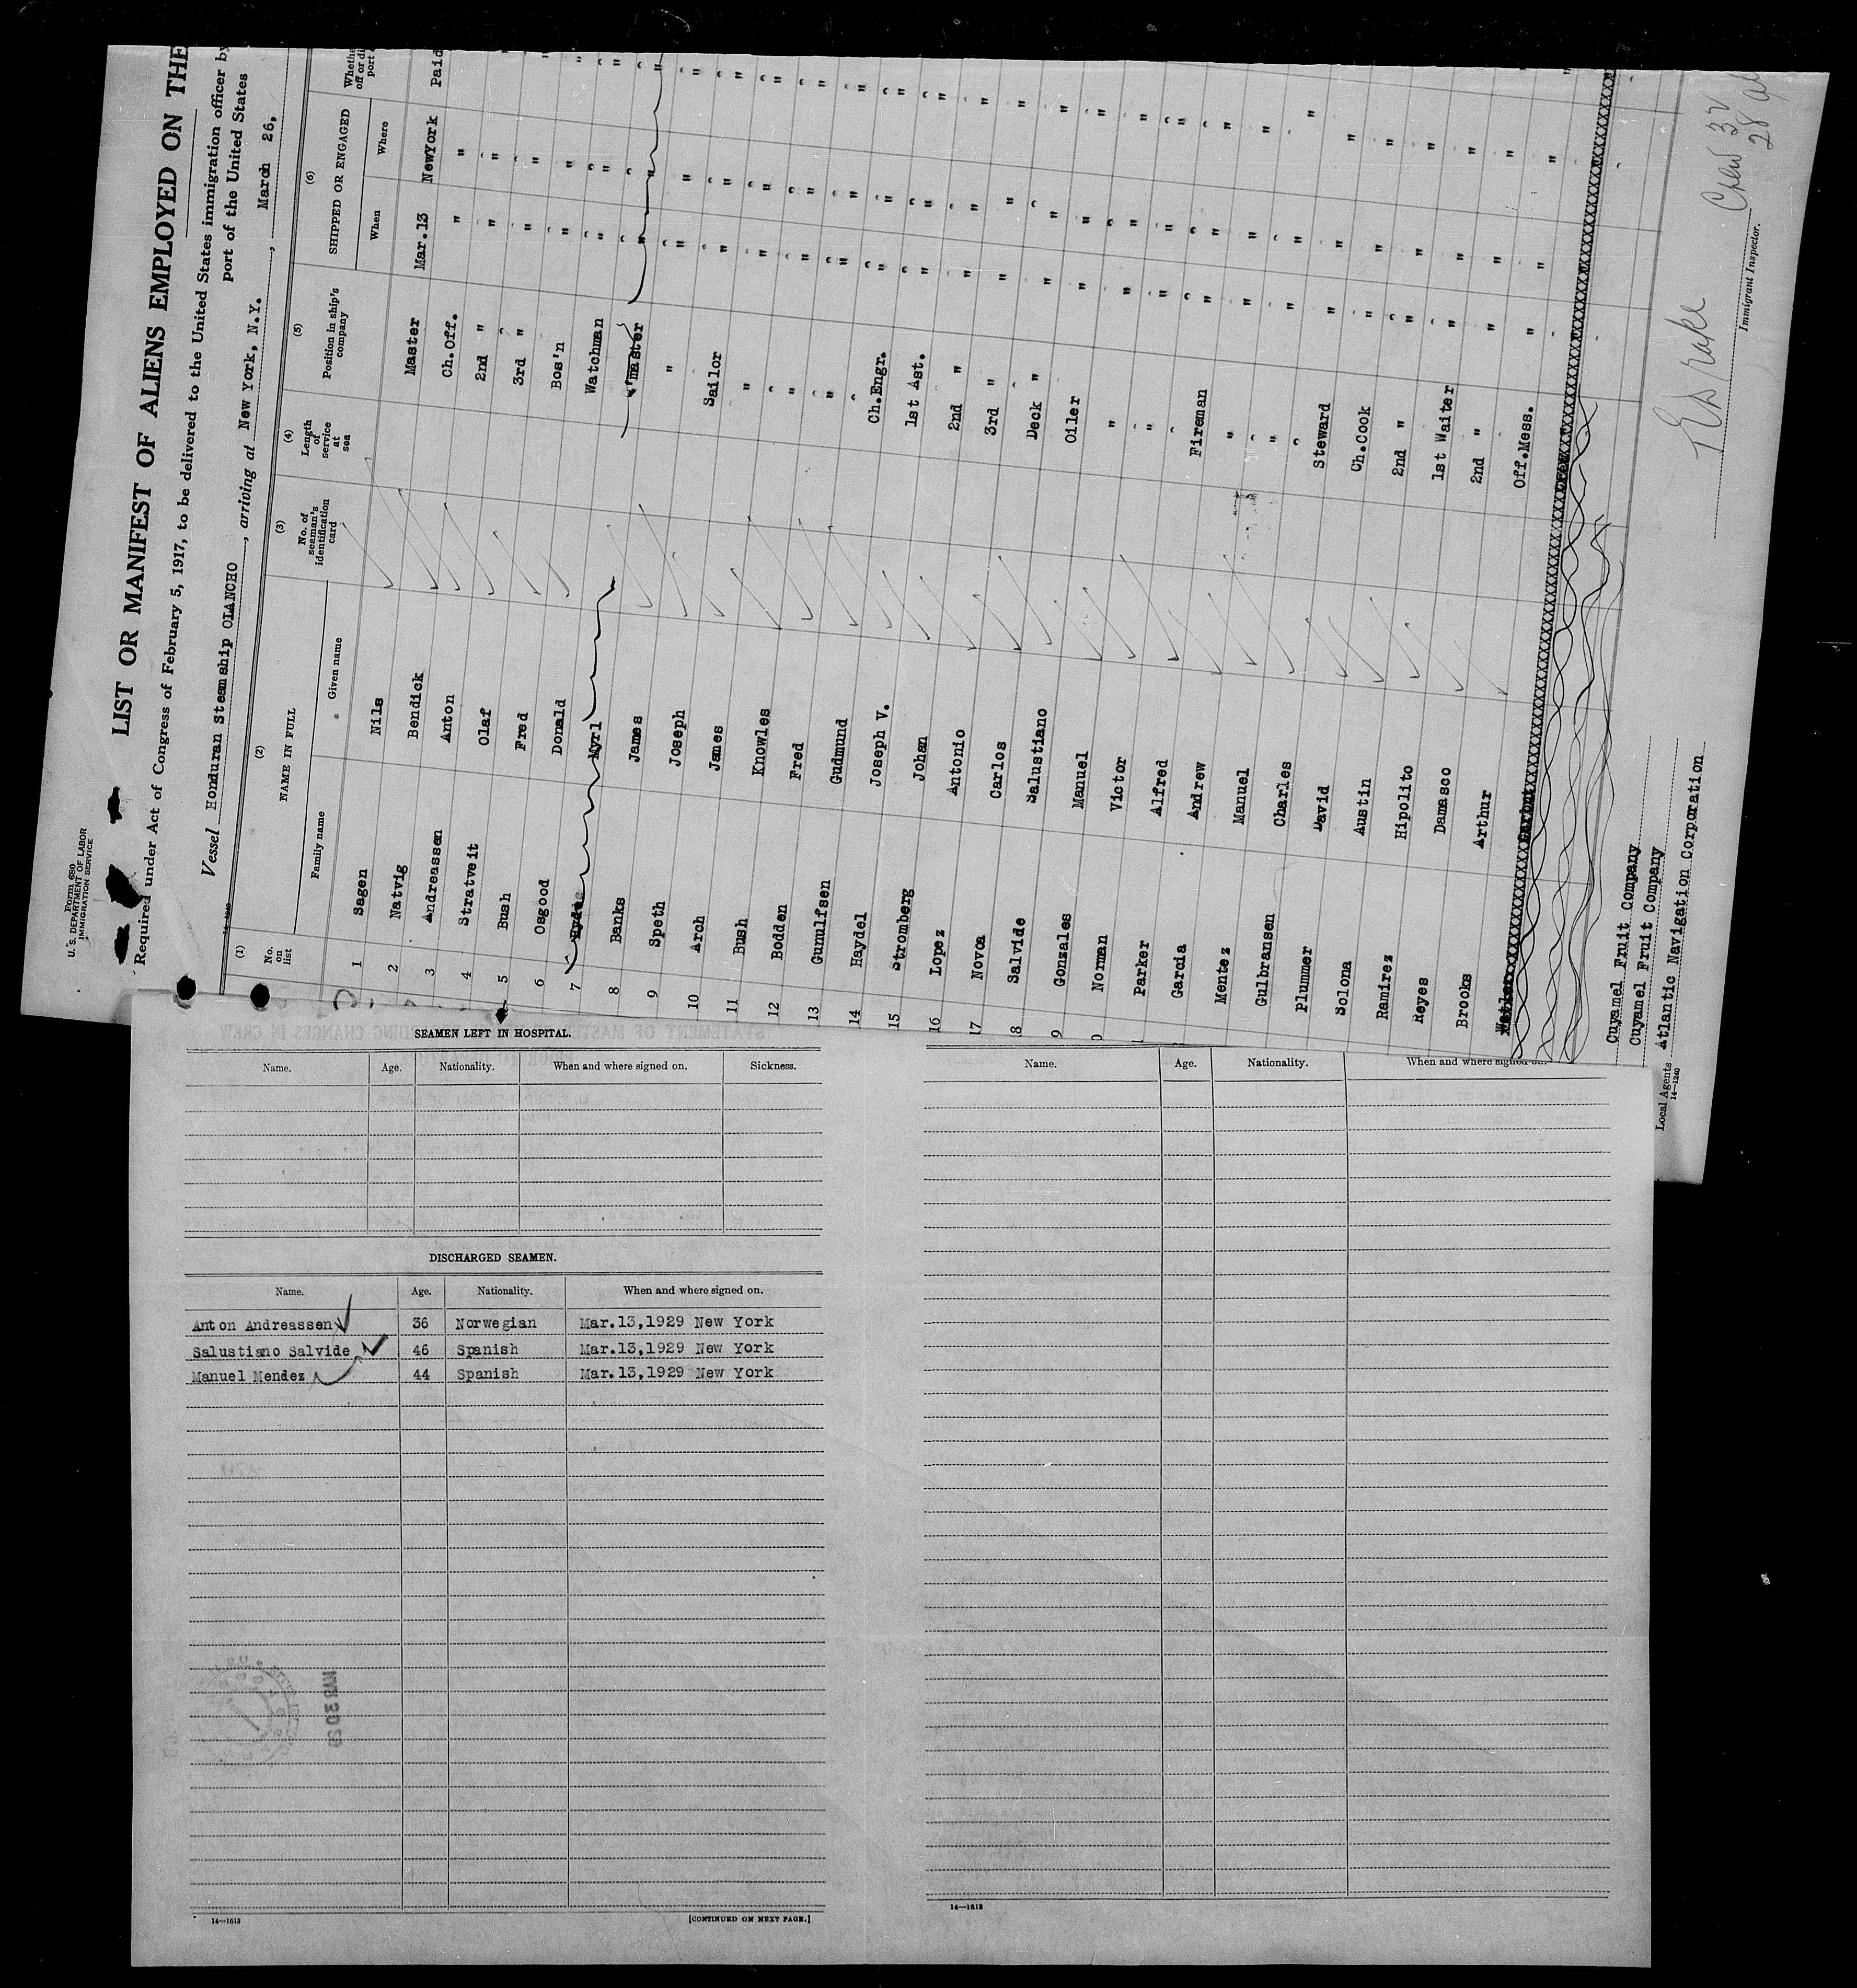 Form 680
U. S. DEPARTMENT OF LABOR
IMMIGRATION SERVICE
LIST OR MANIFEST OF ALIENS EMPLOYED ON THE
Required under Act of Congress of February 5, 1917, to be delivered to the United States immigration officer by
port of the United States
Vessel Honduran Steamship OLANCHO, arriving at New York, N.Y., March 26,
14—1240
(1) (2) (3) (4) (5) (6)
No. on list NAME IN FULL No. of seaman's identification card Length of service at sea Position in ship's company SHIPPED OR ENGAGED Whethe off or di port
Family name Given name When Where
1 Sagen Nils Master Mar.13 NewYork Paid
2 Natvig Bendick Ch.Off. " "
3 Andreassen Anton 2nd " " "
4 Stratveit Olaf 3rd " " "
5 Bush Fred Bos'n " "
6 Osgood Donald Watchman " "
7 Hyde Myrl 'master " "
8 Banks James " " " "
9 Speth Joseph Sailor " " "
10 Arch James " " " "
11 Bush Knowles " " " "
12 Bodden Fred " " " "
13 Gunulfsen Gudmund Ch.Engr. " " "
14 Haydel Joseph V. 1st Ast. " " "
15 Stromberg Johan 2nd " " " "
16 Lopez Antonio 3rd " " " "
17 Novoa Carlos Deck " " " "
8 Salvide Salustiano Oiler " " "
9 Gonzales Manuel " " " "
0 Norman Victor " " " "
Parker Alfred Fireman " " "
Garcia Andrew " " " "
Mentez Manuel " " " "
Gulbransen Charles Steward " " "
Plummer David Ch.Cook " " "
Solona Austin 2nd " " " "
Ramirez Hipolito 1st Waiter " " "
Reyes Damasco 2nd " " " "
Brooks Arthur Off.Mess. " " "
Garbut
Cuyamel Fruit Company
Cuyamel Fruit Company
Local Agents Atlantic Navigation Corporation
14—1240
Immigrant Inspector.
Crew 32
28
SEAMEN LEFT IN HOSPITAL.
Name. Age. Nationality. When and where signed on. Sickness.
DISCHARGED SEAMEN.
Name. Age. Nationality. When and where signed on.
Anton Andreassen 36 Norwegian Mar.13,1929 New York
Salustiano Salvide 46 Spanish Mar.13,1929 New York
Manuel Mendez 44 Spanish Mar.13,1929 New York
14—1613
[CONTINUED ON NEXT PAGE.]
Name. Age. Nationality. When and where signed on.
14—1613